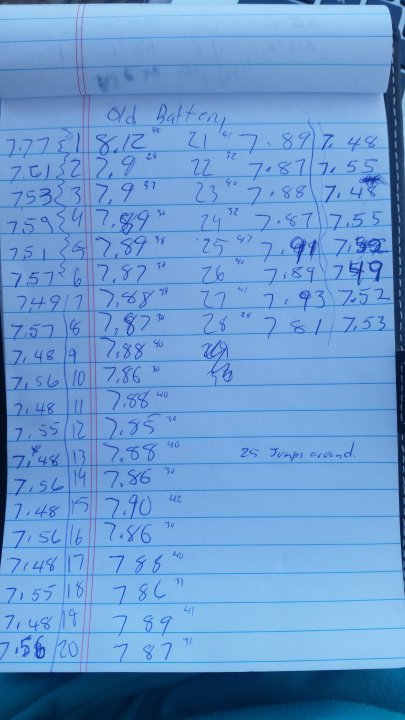 Old Battery
7.77 1 8.12 21 41 7.89 7.48
7.61 2 7.9 29 22 32 7.87 7.55
753 3 7.9 37 23 40 7.88 7.48
7.59 4 7.89 30 24 32 7.87 7.55
7.51 5 7.89 38 25 47 7.91
7.57 6 7.87 30 26 40 7.89 749
7.49 7 7.88 39 27 41 7.93 7.52
7.57 8 7.87 30 28 7.81 7.53
7.48 9 7.88 40
7.56 10 7.86 30
7.48 11 7.88 40
7.55 12 7.85 30
7.48 13 7.88 40 25 Jumps around.
7.56 14 7.86 30
7.48 15 7.90 42
7.56 16 7.86 30
7.48 17 7 88 40
7.55 18 7 86 31
7.48 19 7 89 41
7.56 20 7 87 31